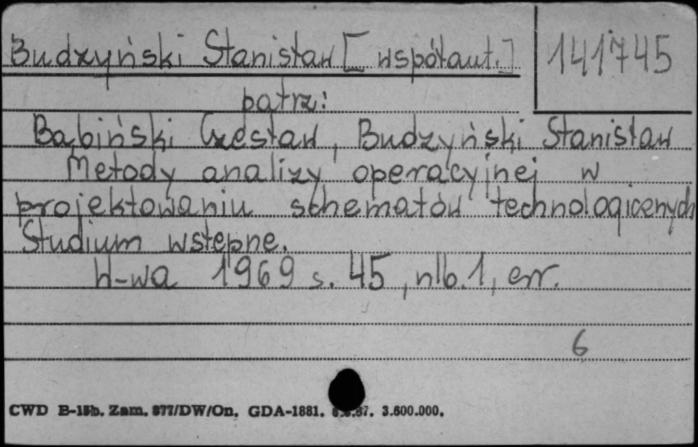 Budzyński Stanisław [współaut.]
141745
patrz:
Bąbiński Czesław, Budzyński Stanisław
Metody analizy operacyjnej w
projektowaniu schematów technologicznych
Studium wstępne.
W-wa 1969 s. 45, nlb. 1, err.
6
CWD B-15b. Zam. 877/DW/On. GDA-1881. 67. 3.600.000.